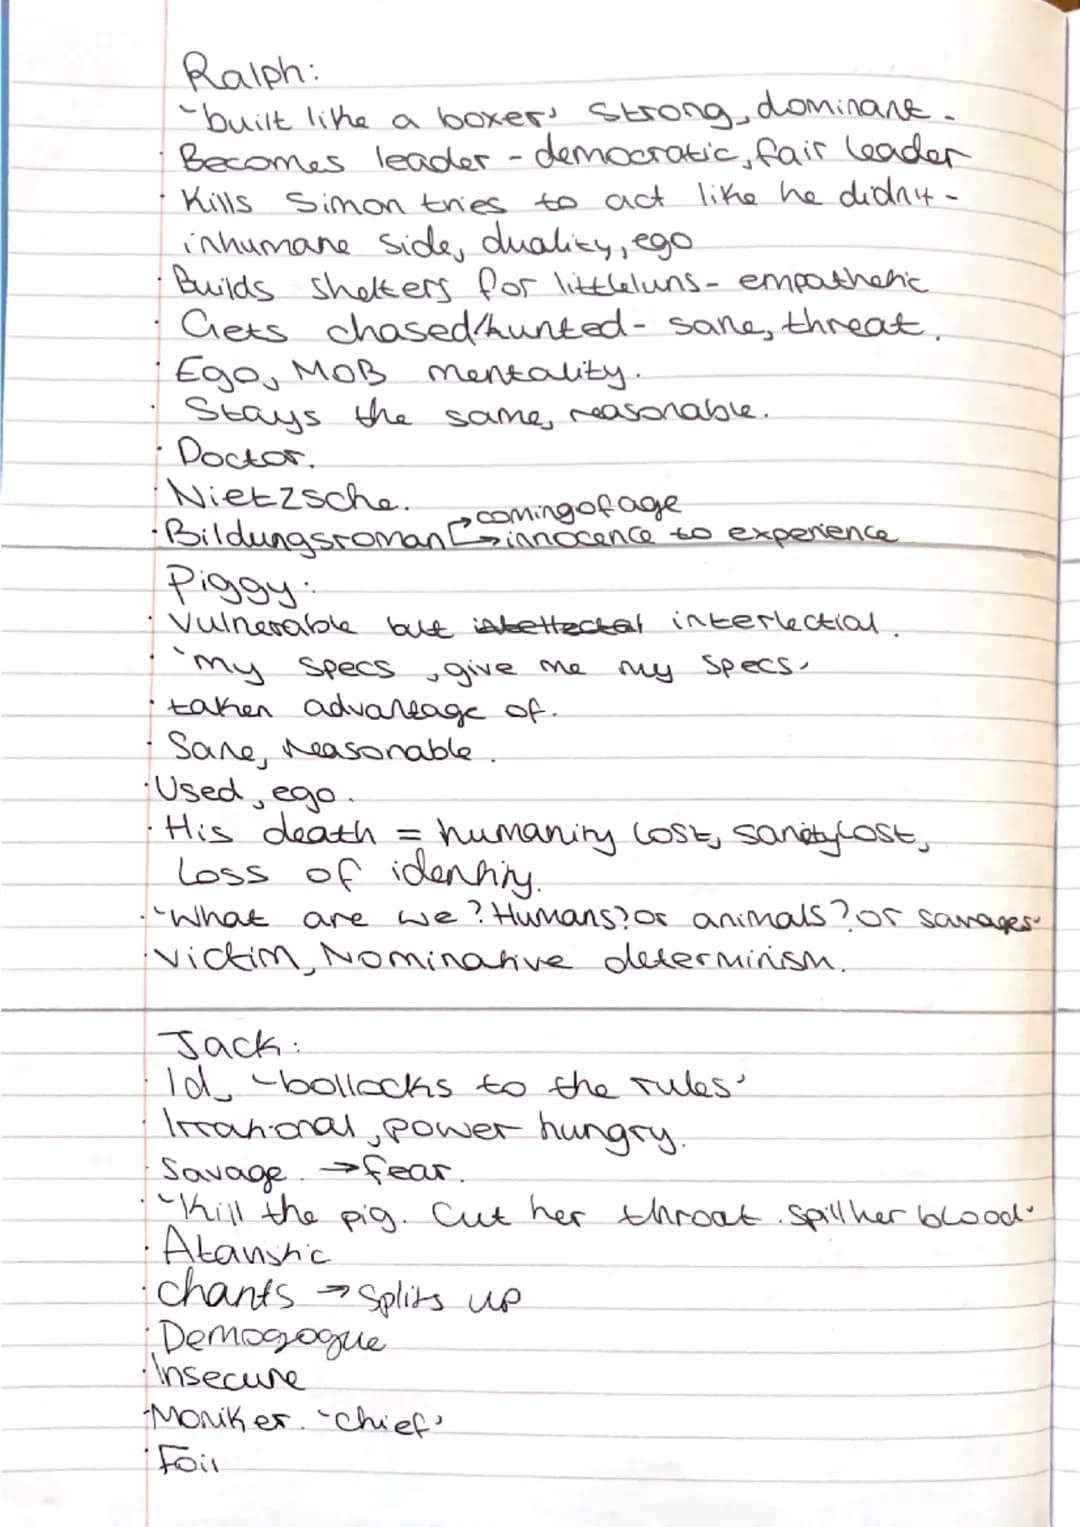 Ralph:
'built like a boxer' strong, dominant.
· Becomes leader - democratic, fair leader
· Kills Simon tries to act like he didn't -
inhumane side, duality, ego
· Builds shelters for littleluns - empathetic
· Gets chased/hunted - sane, threat.
· Ego, MOB mentality.
· Stays the same, reasonable.
· Doctor.
· Nietzsche.
→coming of age
· Bildungsroman →innocence to experience
Piggy:
· Vulnerable but intellectal interlectial.
· 'my specs, give me my specs'
· taken advantage of.
· Sane, reasonable.
· Used, ego.
· His death = humanity lost, sanity lost,
loss of identity.
· 'What are we? Humans? or animals? or savages'
· victim, Nominative determinism.
Jack:
· Id, 'bollocks to the rules'
· Irrational, power hungry.
· Savage. →fear.
· 'Kill the pig. Cut her throat. Spill her blood'
· Atavistic
· chants → splits up
· Demogogue
· Insecure
· Moniker. 'chief'
· Foil